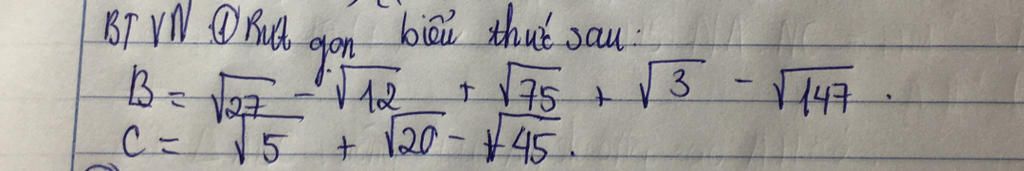 BT VN ① Rút gọn biểu thức sau:
B = √27 - √12 + √75 + √3 - √147 .
C = √5 + √20 - √45 .